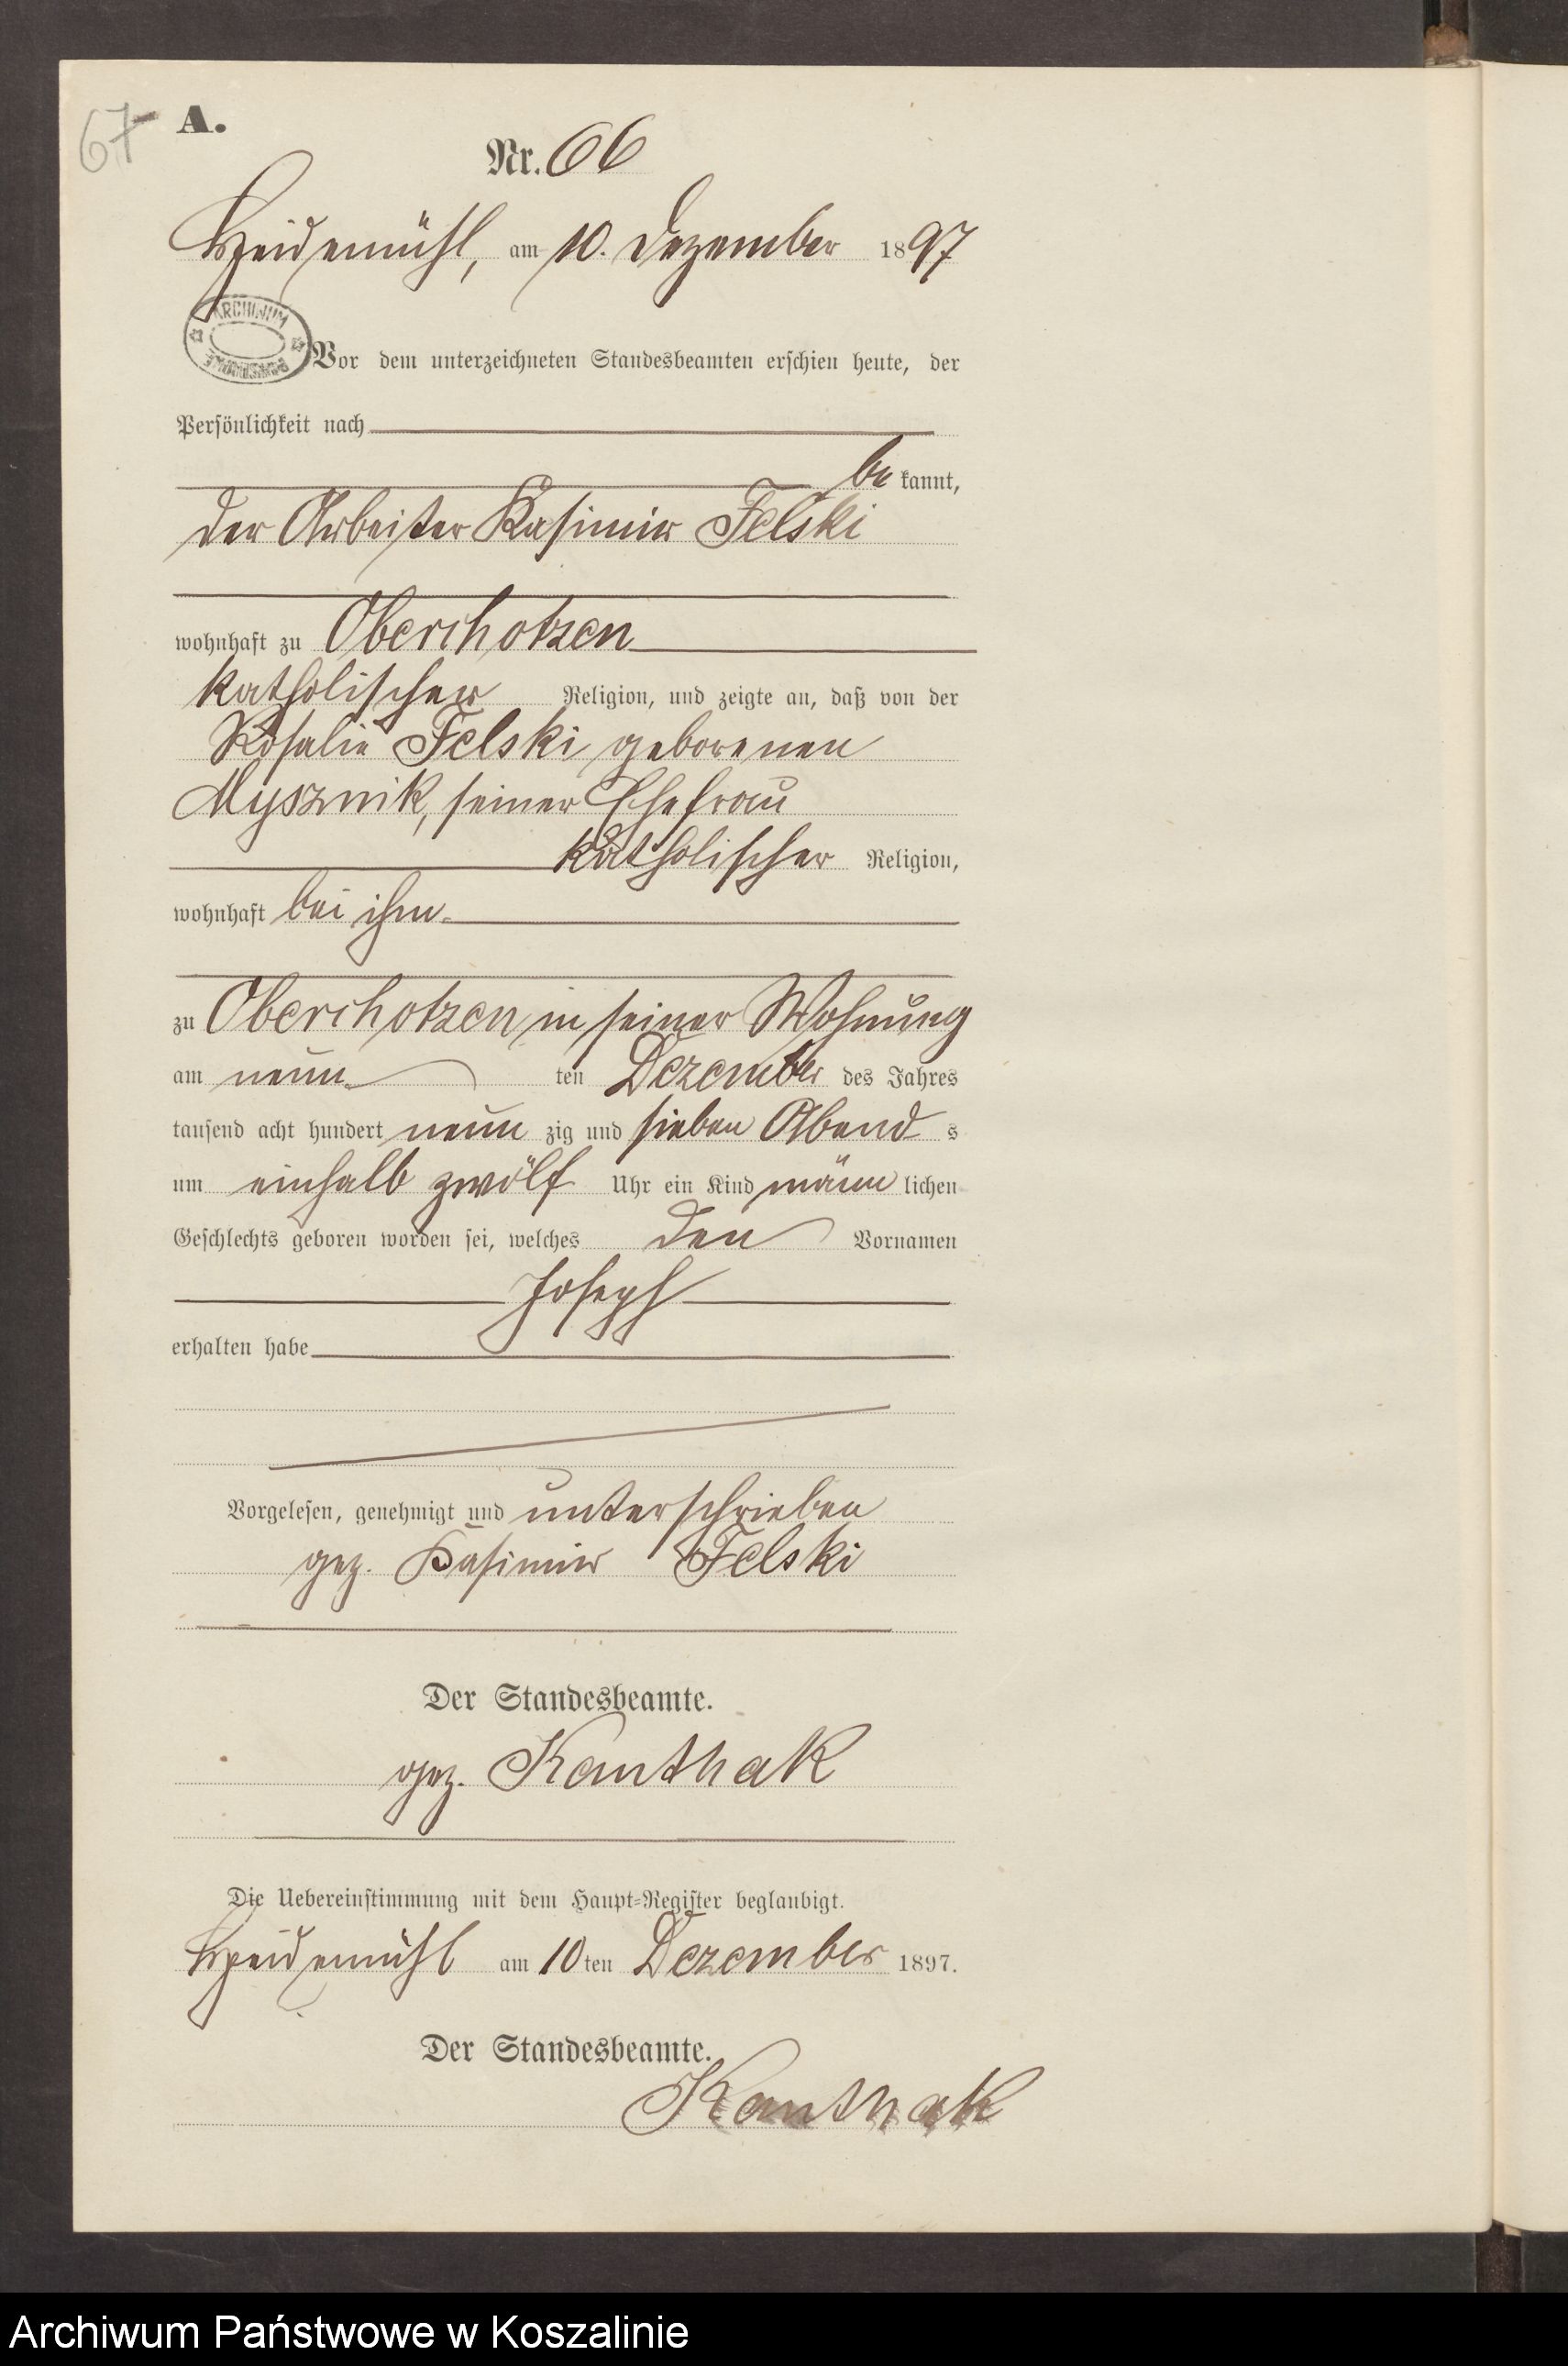 67
A.
Nr. 66
Heidemühl, am 10. Dezember 1897
ARCHIWUM
Vor dem unterzeichneten Standesbeamten erschien heute, der
Persönlichkeit nach
be kannt,
der Arbeiter Kasimir Felski
wohnhaft zu Oberchotzen
katholischer Religion, und zeigte an, daß von der
Rosalie Felski geborenen
Mysznik, seiner Ehefrau
katholischer Religion,
wohnhaft bei ihm
zu Oberchotzen in seiner Wohnung
am neun ten Dezember des Jahres
tausend acht hundert neun zig und sieben Abend s
um einhalb zwölf Uhr ein Kind männ lichen
Geschlechts geboren worden sei, welches den Vornamen
Joseph
erhalten habe
Vorgelesen, genehmigt und unterschrieben
gez. Kasimir Felski
Der Standesbeamte.
gez. Kanthak
Die Uebereinstimmung mit dem Haupt-Register beglaubigt.
Heidemühl am 10 ten Dezember 1897.
Der Standesbeamte.
Kanthak
Archiwum Państwowe w Koszalinie